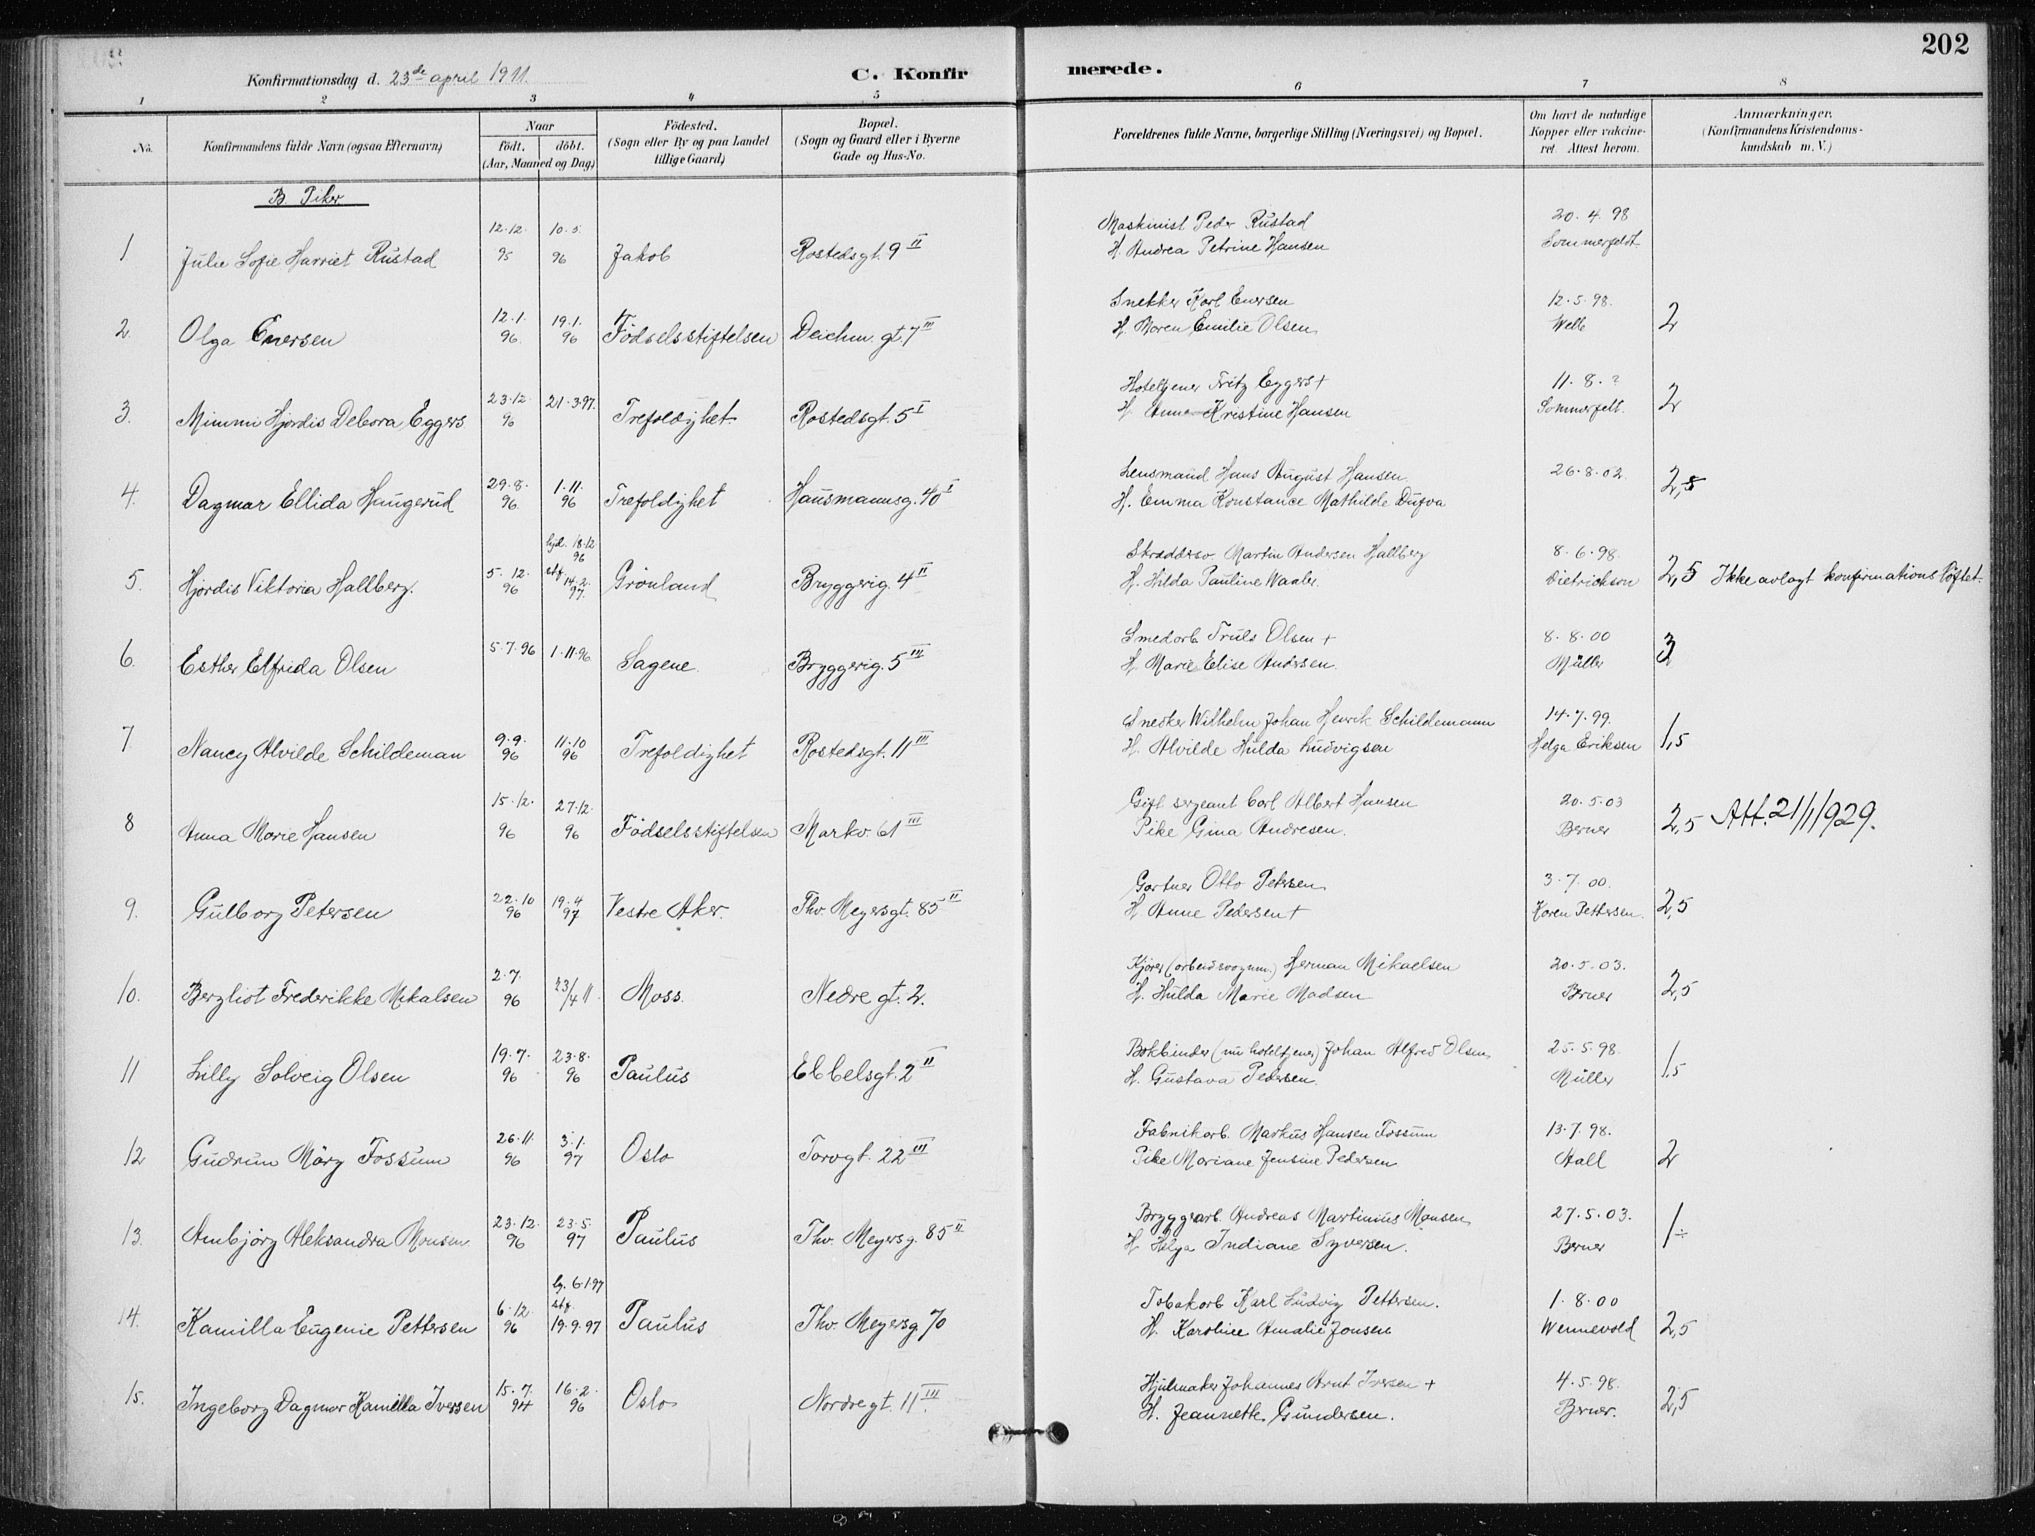 202
Konfirmationsdag d. 23de april 1911.
C. Konfirmerede.
1 2 3 4 5 6 7 8
No. Konfirmandens fulde Navn (ogsaa Efternavn) Naar født. døbt. (Aar, Maaned og Dag) Fødested. (Sogn eller By og paa Landet tillige Gaard) Bopæl. (Sogn og Gaard eller i Byerne Gade og Hus-No. Forældrenes fulde Navne, borgerlige Stilling (Næringsvei) og Bopæl. Om havt de naturlige Kopper eller vakcineret. Attest herom. Anmærkninger. (Konfirmandens Kristendomskundskab m. V.)
B Piker
12.12. 10.5. Maskinist Peder Rustad 20.4.98
1 Julie Sofie Harriet Rustad 95 96 Jakob Rostedsgt. 9 II H. Andrea Petrine Hansen Sommerfeldt
12.1. 19.1. Snekker Karl Enersen 12.5.98.
2. Olga Enersen 96. 96 Fødselsstiftelsen Deichm. gt. 7 III H. Maren Emilie Olsen Welle 2
23.12. 21.3.97. Hoteltjener Fritz Eggers + 11.8.?
3. Mimmi Hjørdis Debora Eggers 96 Trefoldighet Rostedsgt. 5 I H. Anna Kristine Hansen Sommerfelt. 2
29.8. 1.11. Lensmand Hans August Hansen 26.8.02.
4. Dagmar Ellida Haugerud 96. 96 Trefoldighet Hausmannsg. 40 I H. Emma Konstance Mathilde Dufva 2,5
hjd. 18.12 96
5. 12. stf. 14.2. Skrædderso Martin Andersen Hallberg 8.6.98.
5. Hjørdis Viktoria Hallberg. 96 97. Grønland Bryggerig. 4 II H. Hilda Pauline Waaler. Dietrichson 2,5 Ikke avlagt konfirmationsløftet.
5.7.96 1.11.96 Smedarb. Truls Olsen + 8.8.00
6. Esther Elfrida Olsen Sagene. Bryggerig. 5 III H. Marie Elise Andersen. Müller 3
9.9. 11.10 Snedker Wilhelm Johan Henrik Schildemann 14.7.99.
7 Nancy Alvilde Schildeman 96 96 Trefoldighet Rostedsgt. 11 III H. Alvilde Hulda Ludvigsen Helga Eriksen 1,5
15.12. 27.12. Gift. sergeant Carl Albert Hansen 20.5.03
8 Anna Marie Hansen 96 96 Fødselsstiftelsen Markv. 61 III Pike Gina Andresen. Berner 2,5 Att. 21/1 1929.
22.10 19.4 Gartner Otto Petersen 3.7.00.
9. Gulborg Petersen 96 97 Vestre Aker. Thv. Meyersgt. 85 II H. Anne Pedersen + Karen Pettersen. 2,5
2.7. Kjører (arbeidsvognm.) Herman Mikaelsen 20.5.03.
10. Bergliot Frederikke Mikalsen 96 23/4 11. Moss. Nedre gt. 2. H. Hulda Marie Madsen Berner 2,5
19.7. 23.8. Bokbinder (nu hoteltjener) Johan Alfred Olsen 25.5.98.
11 Lilly Solveig Olsen 96 96 Paulus Ebbelsgt. 2 II H. Gustava Pedersen. Müller 1,5
26.11. 3.1. Fabrikarb. Markus Hansen Fossum 13.7.98.
12 Gudrun Märy Fossum 96 97 Oslo Torvgt. 22 III Pike Mariane Jensine Pedersen Hall 2
23.12. 23.5. Bryggerarb. Andreas Martinius Monsen 27.5.03.
13. Arnbjørg Aleksandra Monsen 96 97 Paulus Thv. Meyersg. 85 II H. Helga Indiane Syversen. Berner 1÷
hj. 6.1.97
6.12. stf. Tobakarb. Karl Ludvig Pettersen. 1.8.00
14. Kamilla Eugenie Pettersen 96 19.9.97 Paulus Thv. Meyersg 70 H. Karoline Amalie Jonsen Wennevold 2,5
15.7. 16.2. Hjulmaker Johannes Arnt Iversen + 4.5.98.
15. Ingeborg Dagmar Kamilla Iversen 94 96 Oslo Nordregt. 11 III. H. Jeannette Gundersen. Berner. 2,5